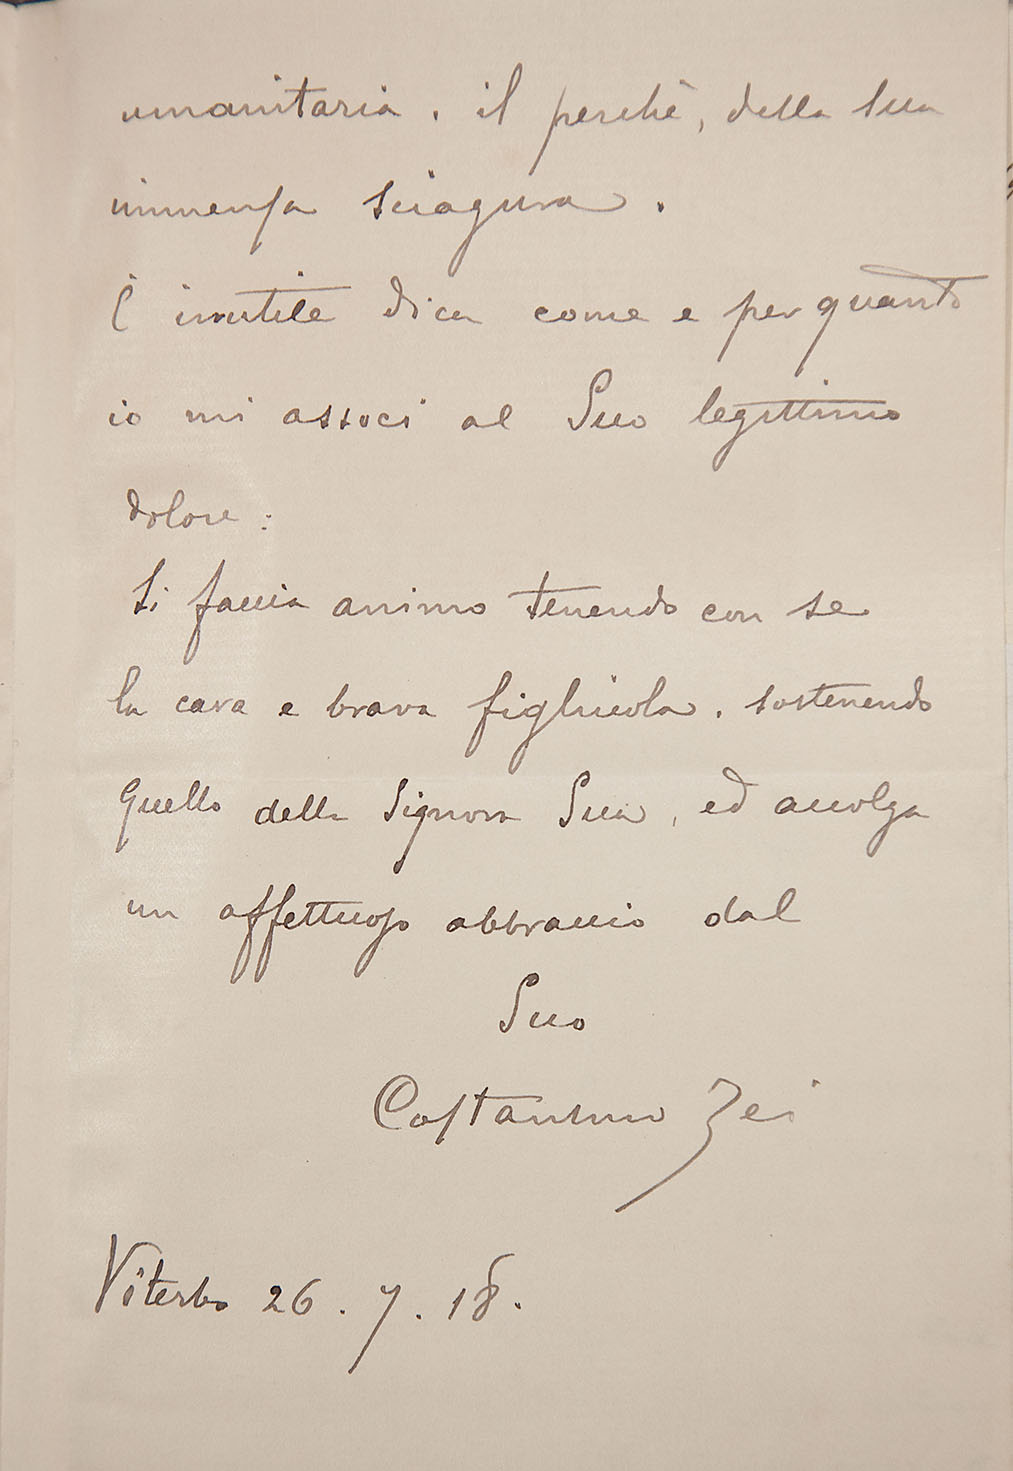 umanitaria. il perchè, della Sua
immensa sciagura.
È inutile dica come e per quanto
io mi associ al Suo legittimo
dolore:
Si faccia animo tenendo con se
la cara e brava figliuola. sostenendo
quello della Signora Sua, ed accolga
un affettuoso abbraccio dal
Suo
Costantino Zei
Viterbo 26.7.18.